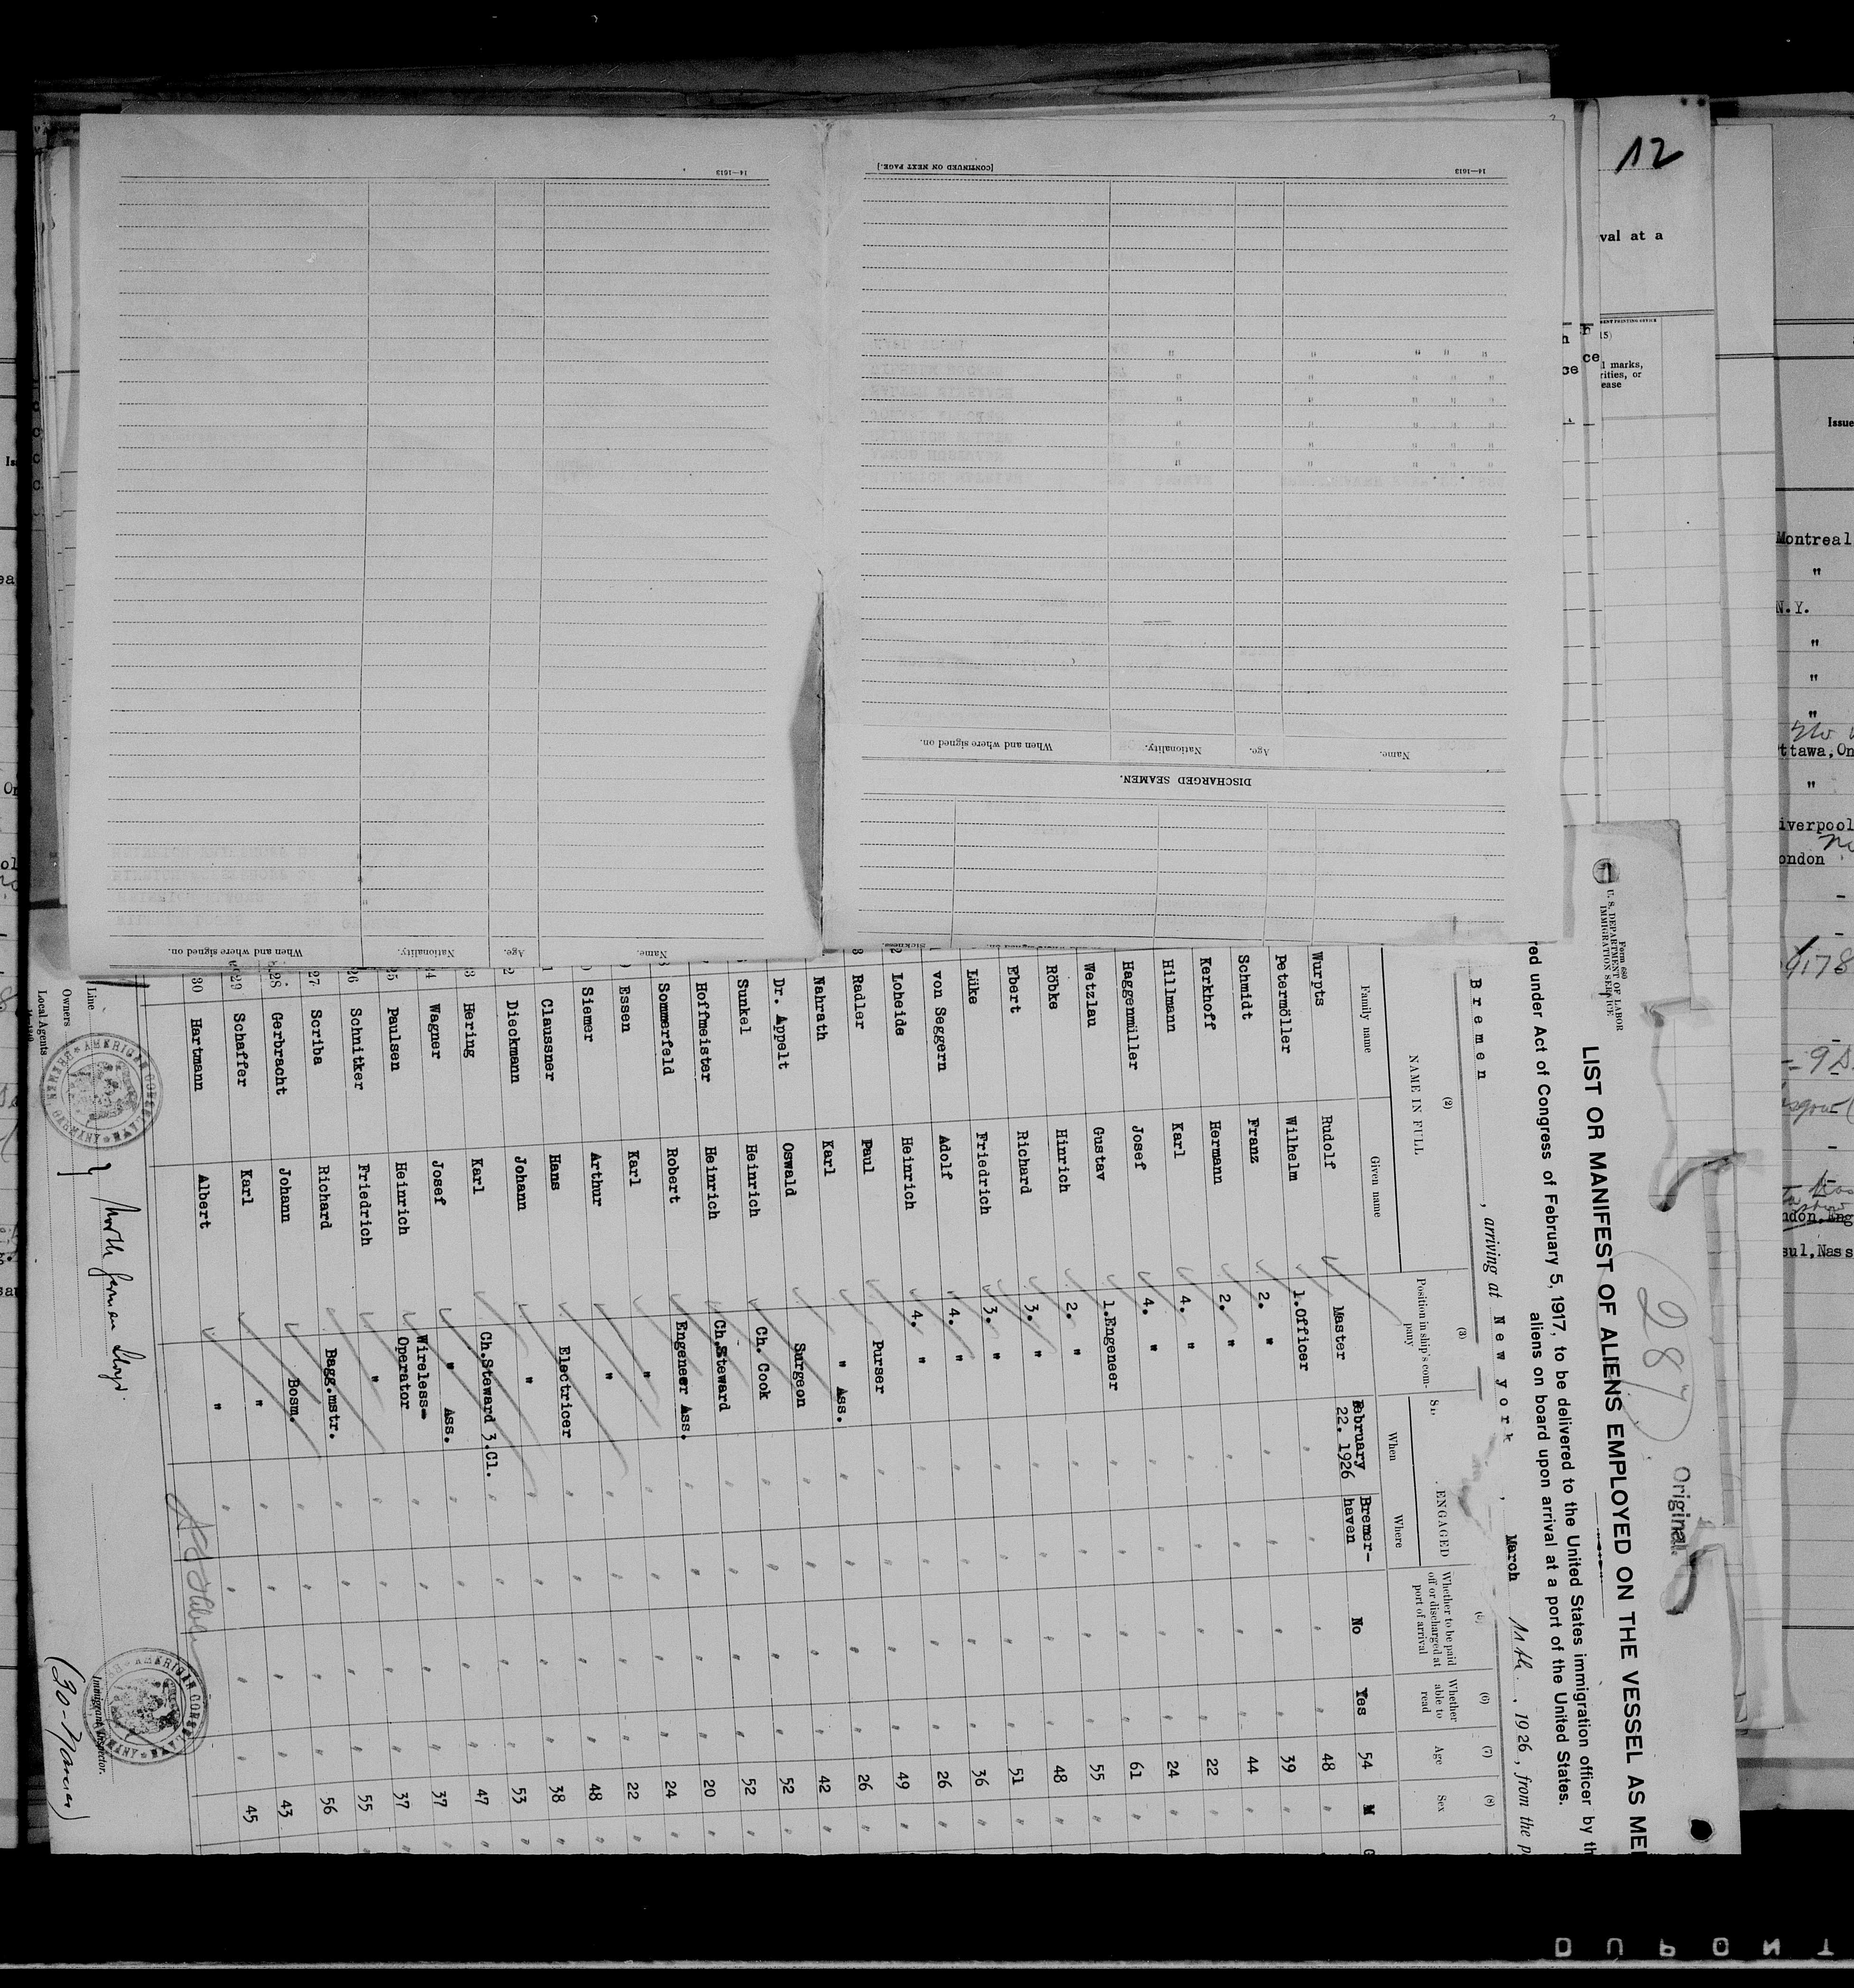 12
val at a
14—1613
14—1613
[CONTINUED ON NEXT PAGE.]
Name.
Age.
Nationality.
When and where signed on.
DISCHARGED SEAMEN.
Name.
Age.
Nationality.
When and where signed on.
Sickness.
marks,
rities, or
ease
Issue
Montreal
"
N.Y.
"
"
"
ttawa,On
"
iverpool
ondon
ndon,Eng
sul,Nass
Form 680
U. S. DEPARTMENT OF LABOR
IMMIGRATION SERVICE
Original
287
LIST OR MANIFEST OF ALIENS EMPLOYED ON THE VESSEL AS ME
red under Act of Congress of February 5, 1917, to be delivered to the United States immigration officer by th
aliens on board upon arrival at a port of the United States.
Bremen, arriving at New york, March 11th., 1926, from the p
(2) (3) (5) (6) (7) (8)
NAME IN FULL
Family name Given name
Position in ship's company
ENGAGED
When Where
Whether to be paid off or discharged at port of arrival
Whether able to read
Age Sex
Wurpts Rudolf Master February 22. 1926 Bremerhaven No Yes 54 M
Petermöller Wilhelm 1.Officer " " " " 48 "
Schmidt Franz 2. " " " " " 39 "
Kerkhoff Hermann 2. " " " " " 44 "
Hillmann Karl 4. " " " " " 22 "
Haggenmüller Josef 4. " " " " " 24 "
Wetzlau Gustav 1.Engeneer " " " " 61 "
Röbke Hinrich 2. " " " " " 55 "
Ebert Richard 3. " " " " " 48 "
Lüke Friedrich 3. " " " " " 51 "
von Seggern Adolf 4. " " " " " 36 "
Loheide Heinrich 4. " " " " " 26 "
Radler Paul Purser " " " " 49 "
Nahrath Karl " Ass. " " " " 26 "
Dr. Appelt Oswald Surgeon " " " " 42 "
Sunkel Heinrich Ch. Cook " " " " 52 "
Hoffmeister Heinrich Ch.Steward " " " " 52 "
Sommerfeld Robert Engeneer Ass. " " " " 20 "
Essen Karl " " " " " 24 "
Siemer Arthur " " " " " 22 "
Claussner Hans Electricer " " " " 48 "
Dieckmann Johann " " " " " 38 "
Hering Karl Ch.Steward 3.Cl. " " " " 53 "
Wagner Josef " Ass. " " " " 47 "
Paulsen Heinrich Wireless-Operator " " " " 37 "
Schnitker Friedrich " " " " " 37 "
27 Scriba Richard Bagg.mstr. " " " " 55 "
28 Gerbracht Johann Bosm. " " " " 56 "
29 Schaffer Karl " " " " " 43
30 Hartmann Albert " " " " " 45
Line
Owners
Local Agents
North German Lloyd.
AMERICAN CONSULATE
BREMEN, GERMANY
AMERICAN CONSULATE
Immigrant Inspector.
DUPONT